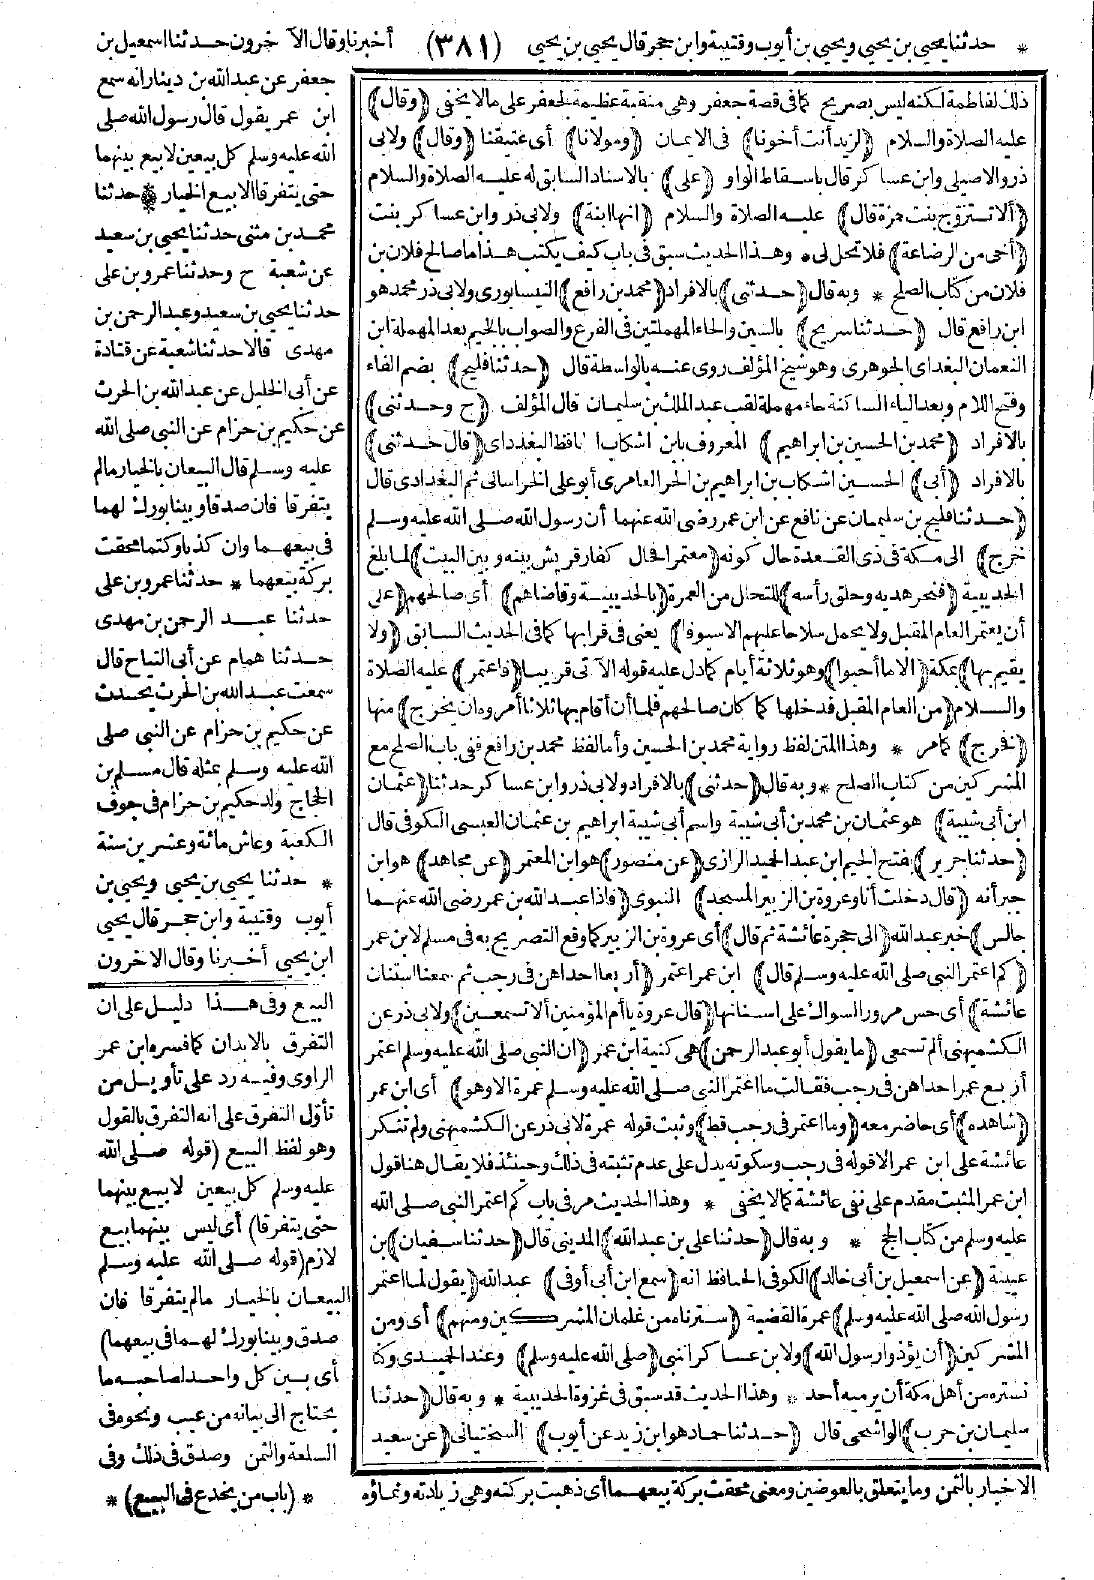 * حدثنا يحيي بن يحيي ويحيي بن أيوب وقتيبة وابن حجر قال يحيي بن يحيي (٣٨١) أخبرنا وقال الآخرون حدثنا اسمعيل بن
ذلك لفاطمة لكنه ليس بصريح كما في قصة جعفر وهي منقبة عظيمة لجعفر على ما لا يخفى (وقال)
عليه الصلاة والسلام (لزيد أنت أخونا) في الايمان (ومولانا) أي عتيقنا (وقال) ولابي
ذر والاصيلي وابن عساكر قال باسقاط الواو (علي) بالاسناد السابق له عليه الصلاة والسلام
(ألا تتزوج بنت حمزة قال) عليه الصلاة والسلام (انها ابنة) ولابي ذر وابن عساكر بنت
(أخي من الرضاعة) فلا تحل لى * وهذا الحديث سبق في باب كيف يكتب هذا ما صالح فلان بن
فلان من كتاب الصلح * وبه قال (حدثني) بالافراد (محمد بن رافع) النيسابوري ولابي ذر محمد هو
ابن رافع قال (حدثنا سريج) بالسين والحاء المهملتين في الفرع والصواب بالجيم بعد المهملة ابن
النعمان البغدادي الجوهري وهو شيخ المؤلف روى عنه بالواسطة قال (حدثنا فليح) بضم الفاء
وفتح اللام وبعد الياء الساكنة حاء مهملة لقب عبد الملك بن سليمان قال المؤلف (ح وحدثني)
بالافراد (محمد بن الحسين بن ابراهيم) المعروف بابن اشكاب الحافظ البغدادي (قال حدثني)
بالافراد (أبي) الحسين اشكاب بن ابراهيم بن الحر العامري أبو علي الخراساني ثم البغدادي قال
(حدثنا فليح بن سليمان عن نافع عن ابن عمر رضي الله عنهما أن رسول الله صلى الله عليه وسلم
خرج) الى مكة في ذى القعدة حال كونه (معتمرا فحال كفار قريش بينه وبين البيت) لما بلغ
الحديبية (فنحر هديه وحلق رأسه) للتحلل من العمرة (بالحديبية وقاضاهم) أي صالحهم (على
أن يعتمر العام المقبل ولا يحمل سلاحا عليهم الا سيوفا) يعني في قرابها كما في الحديث السابق (ولا
يقيم بها) بمكة (الا ما أحبوا) وهو ثلاثة أيام كما دل عليه قوله الآتي قريبا (فاعتمر) عليه الصلاة
والسلام (من العام المقبل فدخلها كما كان صالحهم فلما أن أقام بها ثلاثا أمروه ان يخرج) منها
(فخرج) كما مر * وهذا المتن لفظ رواية محمد بن الحسين وأما لفظ محمد بن رافع ففي باب الصلح مع
المشركين من كتاب الصلح * وبه قال (حدثني) بالافراد ولابي ذر وابن عساكر حدثنا (عثمان
ابن أبي شيبة) هو عثمان بن محمد بن أبي شيبة واسم أبي شيبة ابراهيم بن عثمان العبسي الكوفي قال
(حدثنا جرير) بفتح الجيم ابن عبد الحميد الرازي (عن منصور) هو ابن المعتمر (عن مجاهد) هو ابن
جبر أنه (قال دخلت أنا وعروة بن الزبير المسجد) النبوى (فاذا عبد الله بن عمر رضي الله عنهما
جالس) خبر عبد الله (الى حجرة عائشة ثم قال) أي عروة بن الزبير كما وقع التصريح به في مسلم لابن عمر
(كم اعتمر النبي صلى الله عليه وسلم قال) ابن عمر اعتمر (أربعا احداهن في رجب ثم سمعنا استنان
عائشة) أي حس مرور السواك على اسنانها (قال عروة يا أم المؤمنين ألا تسمعين) ولابي ذر عن
الكشميهني ألم تسمعي (ما يقول أبو عبد الرحمن) هي كنية ابن عمر (ان النبي صلى الله عليه وسلم اعتمر
أربع عمر احداهن في رجب فقالت ما اعتمر النبي صلى الله عليه وسلم عمرة الا وهو) أي ابن عمر
(شاهده) أي حاضر معه (وما اعتمر في رجب قط) وثبت قوله عمرة لابي ذر عن الكشميهني ولم تنكر
عائشة على ابن عمر الا قوله في رجب وسكوته يدل على عدم تثبته في ذلك وحينئذ فلا يقال هنا قول
ابن عمر المثبت مقدم على نفي عائشة كما لا يخفى * وهذا الحديث مر في باب كم اعتمر النبي صلى الله
عليه وسلم من كتاب الحج * وبه قال (حدثنا علي بن عبد الله) المديني قال (حدثنا سفيان) بن
عيينة (عن اسمعيل بن أبي خالد) الكوفي الحافظ انه (سمع ابن أبي أوفى) عبد الله (يقول لما اعتمر
رسول الله صلى الله عليه وسلم) عمرة القضية (سترناه من غلمان المشركين ومنهم) أي ومن
المشركين (أن يؤذوا رسول الله) ولابن عساكر النبي (صلى الله عليه وسلم) وعند الحميدي وكنا
نستره من أهل مكة أن يرميه أحد * وهذا الحديث قد سبق في غزوة الحديبية * وبه قال (حدثنا
سليمان بن حرب) الواشحي قال (حدثنا حماد هو ابن زيد عن أيوب) السختياني (عن سعيد
جعفر عن عبد الله بن دينار انه سمع
ابن عمر يقول قال رسول الله صلى
الله عليه وسلم كل بيعين لا بيع بينهما
حتى يتفرقا الا بيع الخيار * حدثنا
محمد بن مثنى حدثنا يحيي بن سعيد
عن شعبة ح وحدثنا عمرو بن علي
حدثنا يحيي بن سعيد وعبد الرحمن بن
مهدى قالا حدثنا شعبة عن قتادة
عن أبي الخليل عن عبد الله بن الحرث
عن حكيم بن حزام عن النبي صلى الله
عليه وسلم قال البيعان بالخيار ما لم
يتفرقا فان صدقا وبينا بورك لهما
في بيعهما وان كذبا وكتما محقت
بركة بيعهما * حدثنا عمرو بن علي
حدثنا عبد الرحمن بن مهدى
حدثنا همام عن أبي التياح قال
سمعت عبد الله بن الحرث يحدث
عن حكيم بن حزام عن النبي صلى
الله عليه وسلم بمثله قال مسلم بن
الحجاج ولد حكيم بن حزام في جوف
الكعبة وعاش مائة وعشرين سنة
* حدثنا يحيي بن يحيي ويحيي بن
أيوب وقتيبة وابن حجر قال يحيي
ابن يحيي أخبرنا وقال الآخرون
البيع وفي هذا دليل على ان
التفرق بالابدان كما فسره ابن عمر
الراوى وفيه رد على تأويل من
تأول التفرق على انه التفرق بالقول
وهو لفظ البيع (قوله صلى الله
عليه وسلم كل بيعين لا بيع بينهما
حتى يتفرقا) أي ليس بينهما بيع
لازم (قوله صلى الله عليه وسلم
البيعان بالخيار ما لم يتفرقا فان
صدق وبينا بورك لهما في بيعهما)
أي بين كل واحد لصاحبه ما
يحتاج الى بيانه من عيب ونحوه في
السلعة والثمن وصدق في ذلك وفي
الاخبار بالثمن وما يتعلق بالعوضين ومعنى محقت بركة بيعهما أي ذهبت بركته وهي زيادته ونماؤه * (باب من يخدع في البيع) *